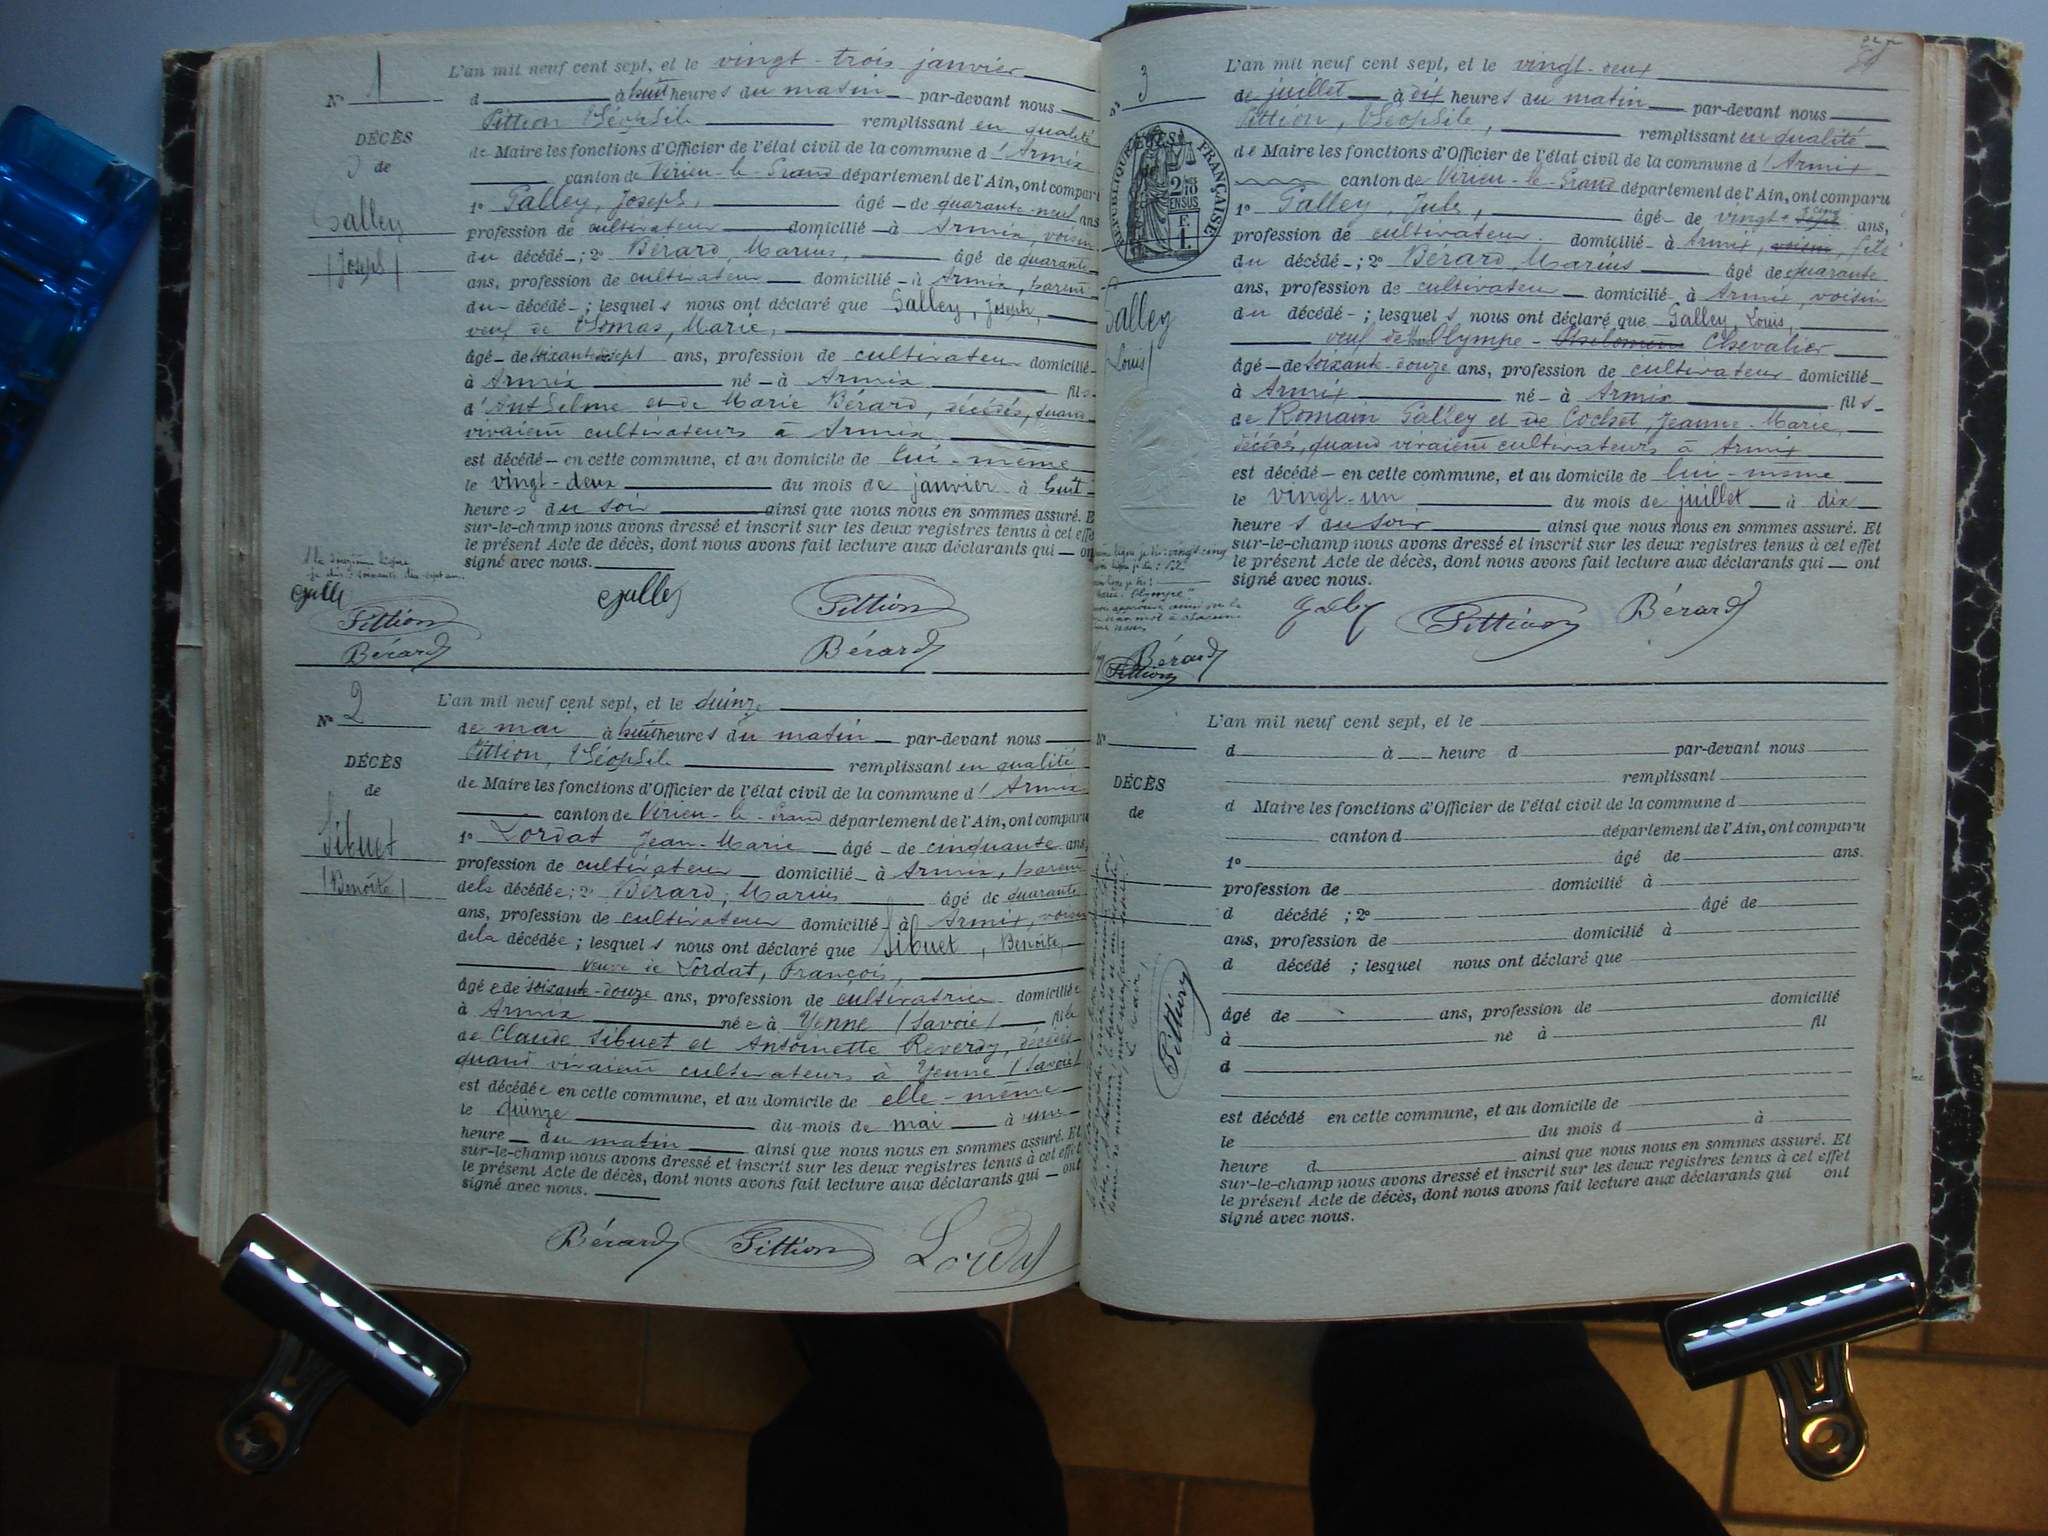 N° 1
DÉCÈS
de
Galley
(Joseph)
L'an mil neuf cent sept, et le vingt-trois janvier
d à huit heures du matin par-devant nous
Pittion Théophile remplissant en qualité
de Maire les fonctions d'Officier de l'état civil de la commune d'Armix
canton de Virieu-le-Grand département de l'Ain, ont compar
1° Galley, Joseph, âgé de quarante-neuf ans
profession de cultivateur domicilié à Armix, voisin
du décédé; 2° Bérard, Marius, âgé de quarante
ans, profession de cultivateur domicilié à Armix, parent
du décédé; lesquels nous ont déclaré que Galley, Joseph,
veuf de Thomas, Marie,
âgé de soixante-sept ans, profession de cultivateur domicilié
à Armix né à Armix fils
d'Anthelme et de Marie Bérard, décédés, quand
vivaient cultivateurs à Armix
est décédé en cette commune, et au domicile de lui-même
le vingt-deux du mois de janvier à huit
heures du soir ainsi que nous nous en sommes assuré. E
sur-le-champ nous avons dressé et inscrit sur les deux registres tenus à cet effe
le présent Acte de décès, dont nous avons fait lecture aux déclarants qui on
signé avec nous.
Galley
Pittion
Bérard
Galley
Pittion
Bérard
N° 2
DÉCÈS
de
Sibuet
(Benoîte)
L'an mil neuf cent sept, et le quinze
de mai à huit heures du matin par-devant nous
Pittion, Théophile remplissant en qualité
de Maire les fonctions d'Officier de l'état civil de la commune d'Armix
canton de Virieu-le-Grand département de l'Ain, ont comparu
1° Lordat Jean-Marie âgé de cinquante ans,
profession de cultivateur domicilié à Armix, parent
de la décédée; 2° Bérard, Marius âgé de quarante
ans, profession de cultivateur domicilié à Armix, voisin
de la décédée; lesquels nous ont déclaré que Sibuet, Benoîte,
veuve de Lordat, François,
âgée de soixante-douze ans, profession de cultivatrice domiciliée
à Armix née à Yenne (Savoie) fille
de Claude Sibuet et Antoinette Reverdy, décédés
quand vivaient cultivateurs à Yenne (Savoie)
est décédée en cette commune, et au domicile de elle-même
le quinze du mois de mai à une
heure du matin ainsi que nous nous en sommes assuré. Et
sur-le-champ nous avons dressé et inscrit sur les deux registres tenus à cet effet
le présent Acte de décès, dont nous avons fait lecture aux déclarants qui ont
signé avec nous.
Bérard Pittion Lordat
N° 3
RÉPUBLIQUE FRANÇAISE
2/10 EN SUS
F 1.
Galley
Louis)
L'an mil neuf cent sept, et le vingt-deux
de juillet à dix heures du matin par-devant nous
Pittion, Théophile, remplissant en qualité
de Maire les fonctions d'Officier de l'état civil de la commune d'Armix
canton de Virieu-le-Grand département de l'Ain, ont comparu
1° Galley, Jules, âgé de vingt-cinq ans,
profession de cultivateur domicilié à Armix, voisin, fils
du décédé; 2° Bérard Marius âgé de quarante
ans, profession de cultivateur domicilié à Armix, voisin
du décédé; lesquels nous ont déclaré que Galley, Louis,
veuf de Marie Olympe - Philomène Chevalier
âgé de soixante-douze ans, profession de cultivateur domicilié
à Armix né à Armix fils
de Romain Galley et de Cochet, Jeanne-Marie,
décédés, quand vivaient cultivateurs à Armix
est décédé en cette commune, et au domicile de lui-même
le vingt-un du mois de juillet à dix
heures du soir ainsi que nous nous en sommes assuré. Et
sur-le-champ nous avons dressé et inscrit sur les deux registres tenus à cet effet
le présent Acte de décès, dont nous avons fait lecture aux déclarants qui ont
signé avec nous.
Galley Pittion Bérard
Bérard
Pittion
N°
DÉCÈS
de
L'an mil neuf cent sept, et le
d à heure d par-devant nous
remplissant
d Maire les fonctions d'Officier de l'état civil de la commune d
canton d département de l'Ain, ont comparu
1° âgé de ans.
profession de domicilié à
d décédé ; 2° âgé de
ans, profession de domicilié à
d décédé ; lesquel nous ont déclaré que
âgé de ans, profession de domicilié
à né à fil
d
est décédé en cette commune, et au domicile de
le du mois d à
heure d ainsi que nous nous en sommes assuré. Et
sur-le-champ nous avons dressé et inscrit sur les deux registres tenus à cet effet
le présent Acte de décès, dont nous avons fait lecture aux déclarants qui ont
signé avec nous.
Pittion